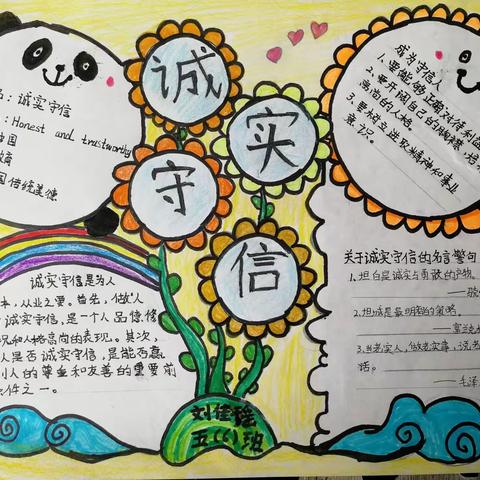 诚
实
守
信
：诚实守信
：Honest and trustworthy
中国
国传统美德
诚实守信是为人
本，从业之要。首先，做人
诚实守信，是一个人品德修
况和人格高尚的表现。其次，
人是否诚实守信，是能否赢
别人的尊重和友善的重要前
条件之一。
成为守信人
1.要能够正确对待利益
2.要开阔自己的胸襟，培养
高尚的人格。
3.要树立进取精神和事业
意识。
关于诚实守信的名言警句
1.坦白是诚实与勇敢的产物。
2.坦诚是最明智的策略。
——富兰克
3.当老实人，做老实事，说老
话。
——毛泽
五(1)班